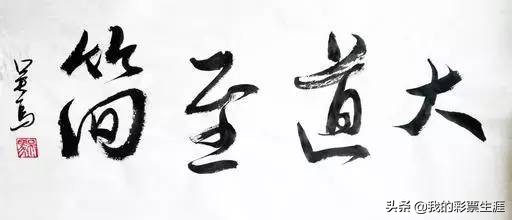 大道至简
头条 @我的彩票生涯